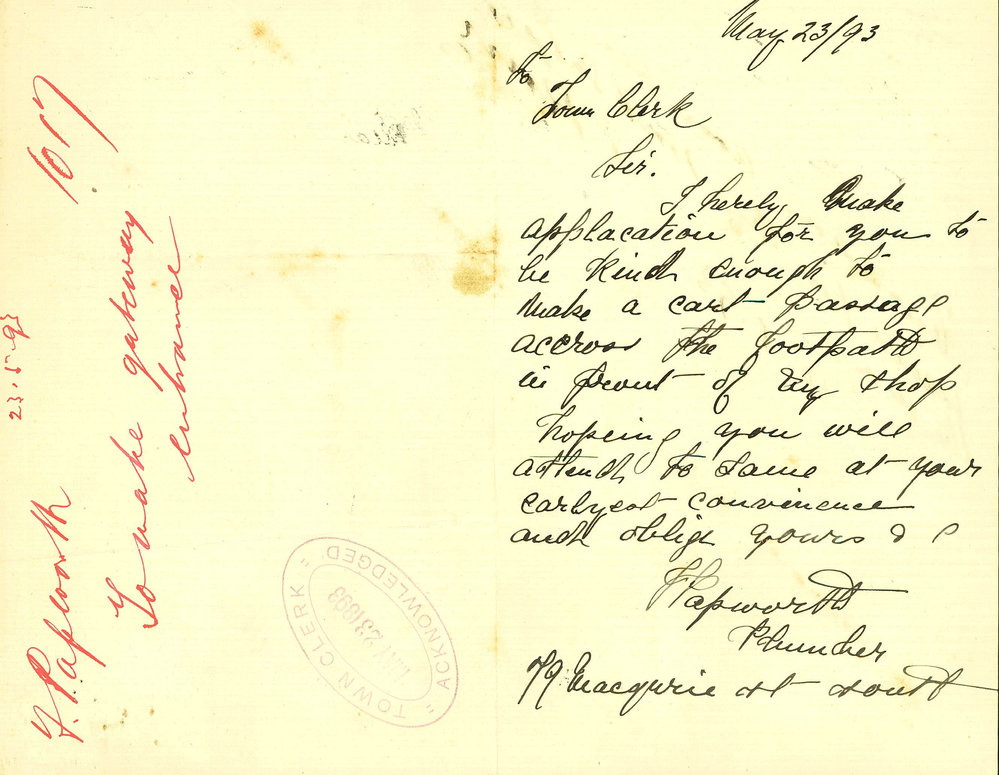 May 23/93
To
Town Clerk
Sir.
I hereby make
applacation for you to
be kind enough to
make a cart passage
accross the footpath
in front of my shop
hopeing you will
attend to same at your
earlyest convinence
and oblige yours & c
F Papworth
Plumber
79 Macqurie st south
F. Papworth 1017
To make gateway
entrance
23.5.93
"TOWN CLERK"
ACKNOWLEDGED
MAY 23 1893